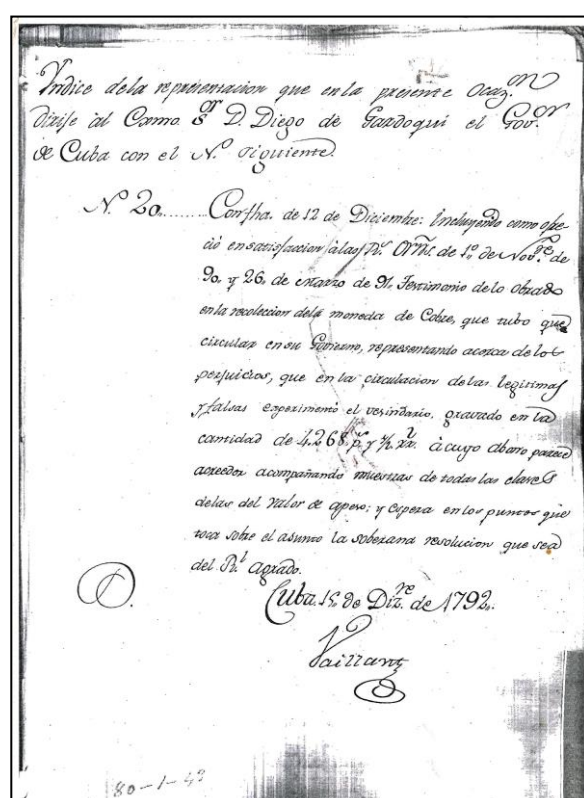 Yndice dela representacion que enla presente Ocaz.ᵒⁿ
dirije al Exmo. S.ᵒʳ D. Diego de Gardoqui el Gov.ᵒʳ
de Cuba con el N.ᵒ siguiente.
N.ᵒ 20....... Con fha. de 12 de Diciembre: Incluyendo como ofre-
ció en satisfaccion àlas R.ˢ Orñs. de 1º de Nov.ʳᵉ de
90. y 26. de Marzo de 91. Testimonio delo obrado
enla recoleccion dela moneda de Cobre, que tubo que
circular en su Govierno, representando acerca delos
perjuicios, que en la circulacion delas legitimas
y falsas experimentó el vesindario, gravado en la
cantidad de 4.268 p.ˢ y ½ rr.ˡ à cuyo abono parece
acreedor acompañando muestras de todas las clases
delas del valor de apeso; y espera en los puntos que
toca sobre el asunto la soberana resolucion que sea
del R.ˡ agrado.
Cuba. 15. de Diz.ʳᵉ de 1792.
Vaillant
80-1-42